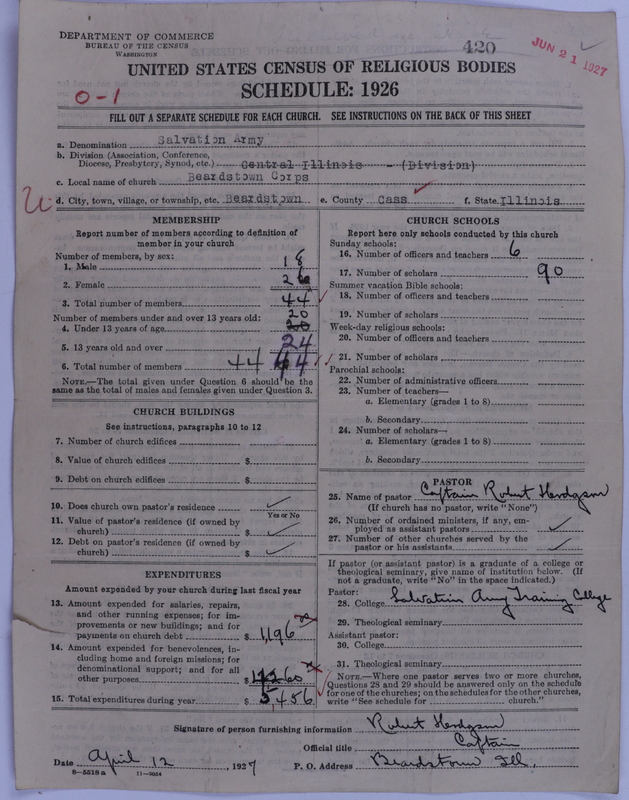 DEPARTMENT OF COMMERCE
BUREAU OF THE CENSUS
WASHINGTON
420
JUN 21 1927
UNITED STATES CENSUS OF RELIGIOUS BODIES
SCHEDULE: 1926
0-1
FILL OUT A SEPARATE SCHEDULE FOR EACH CHURCH. SEE INSTRUCTIONS ON THE BACK OF THIS SHEET
a. Denomination Salvation Army
b. Division (Association, Conference,
Diocese, Presbytery, Synod, etc.) Central Illinois - (Division)
c. Local name of church Beardstown Corps
d. City, town, village, or township, etc. Beardstown e. County Cass f. State Illinois
MEMBERSHIP
Report number of members according to definition of
member in your church
Number of members, by sex:
1. Male 18
2. Female 26
3. Total number of members 44
Number of members under and over 13 years old: 20
4. Under 13 years of age 20
5. 13 years old and over 24
6. Total number of members 44 44
NOTE.—The total given under Question 6 should be the
same as the total of males and females given under Question 3.
CHURCH BUILDINGS
See instructions, paragraphs 10 to 12
7. Number of church edifices
8. Value of church edifices $
9. Debt on church edifices $
10. Does church own pastor's residence
Yes or No
11. Value of pastor's residence (if owned by
church) $
12. Debt on pastor's residence (if owned by
church) $
EXPENDITURES
Amount expended by your church during last fiscal year
13. Amount expended for salaries, repairs,
and other running expenses; for im-
provements or new buildings; and for
payments on church debt $ 1,196
14. Amount expended for benevolences, in-
cluding home and foreign missions; for
denominational support; and for all
other purposes. $ 60
15. Total expenditures during year $ 5,456
CHURCH SCHOOLS
Report here only schools conducted by this church
Sunday schools:
16. Number of officers and teachers 6
17. Number of scholars 90
Summer vacation Bible schools:
18. Number of officers and teachers
19. Number of scholars
Week-day religious schools:
20. Number of officers and teachers
21. Number of scholars
Parochial schools:
22. Number of administrative officers
23. Number of teachers—
a. Elementary (grades 1 to 8)
b. Secondary
24. Number of scholars—
a. Elementary (grades 1 to 8)
b. Secondary
PASTOR
25. Name of pastor Captain Robert
(If church has no pastor, write "None")
26. Number of ordained ministers, if any, em-
ployed as assistant pastors
27. Number of other churches served by the
pastor or his assistants
If pastor (or assistant pastor) is a graduate of a college or
theological seminary, give name of institution below. (If
not a graduate, write "No" in the space indicated.)
Pastor:
28. College Salvation Army Training College
29. Theological seminary
Assistant pastor:
30. College
31. Theological seminary
NOTE.—Where one pastor serves two or more churches,
Questions 28 and 29 should be answered only on the schedule
for one of the churches; on the schedules for the other churches,
write "See schedule for church."
Signature of person furnishing information Robert
Official title Captain
Date April 12, 1927 P. O. Address Beardstown Ill.
8-5518 a 11-9064